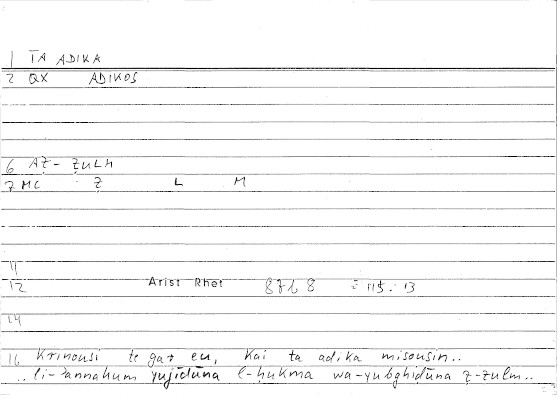 1 TA ADIKA
2 QX ADIKOS
6 AẒ-ẒULM
7 MC Ẓ L M
11
12 Arist Rhet 8768 = 115.13
14
16 Krinousi te gar eu, kai ta adika misousin..
..li-ʾannahum yujīdūna l-ḥukma wa-yubghiḍūna ẓ-ẓulm..